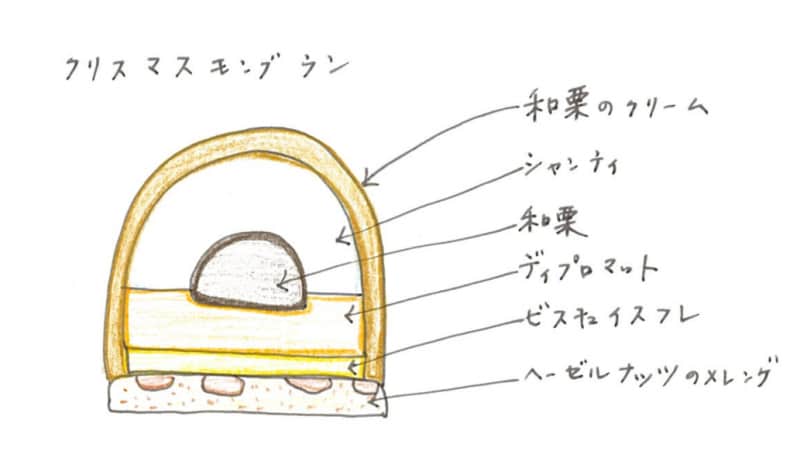 クリスマスモンブラン
和栗のクリーム
シャンティ
和栗
ディプロマット
ビスキュイスフレ
ヘーゼルナッツのメレンゲ